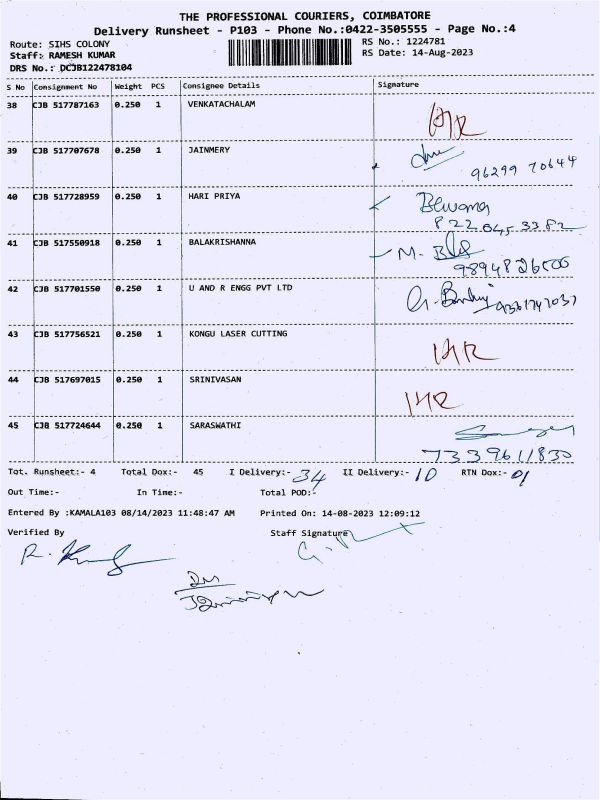 THE PROFESSIONAL COURIERS, COIMBATORE
Delivery Runsheet - P103 - Phone No.:0422-3505555 - Page No.:4
Route: SIHS COLONY RS No.: 1224781
Staff: RAMESH KUMAR RS Date: 14-Aug-2023
DRS No.: DCJB122478104
S No Consignment No Weight PCS Consignee Details Signature
38 CJB 517787163 0.250 1 VENKATACHALAM
39 CJB 517707678 0.250 1 JAINMERY
96299 70644
40 CJB 517728959 0.250 1 HARI PRIYA
41 CJB 517550918 0.250 1 BALAKRISHANNA
42 CJB 517701550 0.250 1 U AND R ENGG PVT LTD
43 CJB 517756521 0.250 1 KONGU LASER CUTTING
44 CJB 517697015 0.250 1 SRINIVASAN
45 CJB 517724644 0.250 1 SARASWATHI
7339611830
Tot. Runsheet:- 4 Total Dox:- 45 I Delivery:- 34 II Delivery:- 10 RTN Dox:- 01
Out Time:- In Time:- Total POD:-
Entered By :KAMALA103 08/14/2023 11:48:47 AM Printed On: 14-08-2023 12:09:12
Verified By Staff Signature